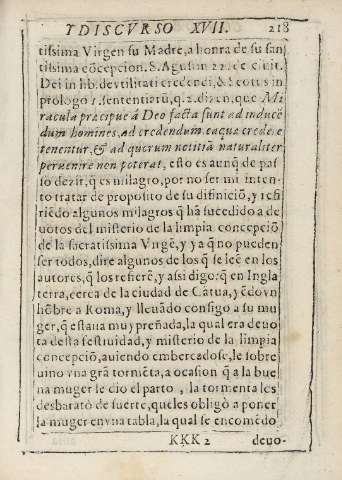 Y DISCVRSO XVII. 218
tissima Virgen su Madre, a honra de su san
tissima cõcepcion. S. Agustin 22. de ciuit.
Dei in lib. de vtilitati credendi, & Scottus in
prologo 1. sententiarũ, q. 2. dizen, que Mi
racula præcipue à Deo facta sunt ad inducẽ
dum homines, ad credendum eaquæ credere
tenentur, & ad quorum notitiã naturaliter
peruenire non poterat, esto es aunq̃ de pas
so dezir, q̃ es milagro, por no ser mi inten-
to tratar de proposito de su difiniciõ, y refi
riẽdo algunos milagros q̃ hã sucedido a de
uotos del misterio de la limpia concepciõ
de la sacratissima Virgẽ, y ya q̃ no pueden
ser todos, dire algunos de los q̃ se leẽ en los
autores, q̃ los refierẽ, y assi digo: q̃ en Ingla
terra, cerca de la ciudad de Catua, yẽdo vn
hõbre a Roma, y lleuãdo consigo a su mu
ger, q̃ estaua muy preñada, la qual era deuo
ta desta festiuidad, y misterio de la limpia
concepciõ, auiendo embarcadose, le sobre
uino vna grã tormẽta, a ocasion q̃ a la bue
na muger le dio el parto, la tormenta les
desbaratò de suerte, que les obligò a poner
la muger en vna tabla, la qual se encomẽdò
KKK 2 deuo-